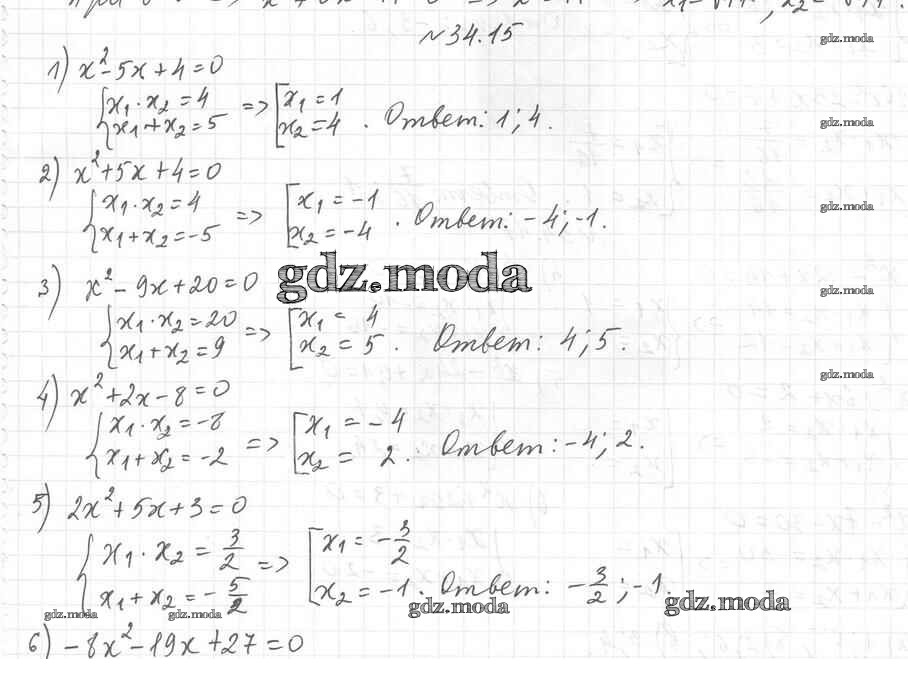 №34.15
gdz.moda
1) x² - 5x + 4 = 0
{ x₁ · x₂ = 4 => [ x₁ = 1
{ x₁ + x₂ = 5 [ x₂ = 4 . Ответ: 1; 4.
gdz.moda
2) x² + 5x + 4 = 0
{ x₁ · x₂ = 4 => [ x₁ = -1
{ x₁ + x₂ = -5 [ x₂ = -4 . Ответ: -4; -1.
gdz.moda
gdz.moda
3) x² - 9x + 20 = 0
gdz.moda
{ x₁ · x₂ = 20 => [ x₁ = 4
{ x₁ + x₂ = 9 [ x₂ = 5 . Ответ: 4; 5.
gdz.moda
4) x² + 2x - 8 = 0
{ x₁ · x₂ = -8 => [ x₁ = -4
{ x₁ + x₂ = -2 [ x₂ = 2 . Ответ: -4; 2.
5) 2x² + 5x + 3 = 0
{ x₁ · x₂ = 3/2 => [ x₁ = -3/2
{ x₁ + x₂ = -5/2 [ x₂ = -1 . Ответ: -3/2; -1.
gdz.moda gdz.moda gdz.moda gdz.moda
6) -8x² - 19x + 27 = 0